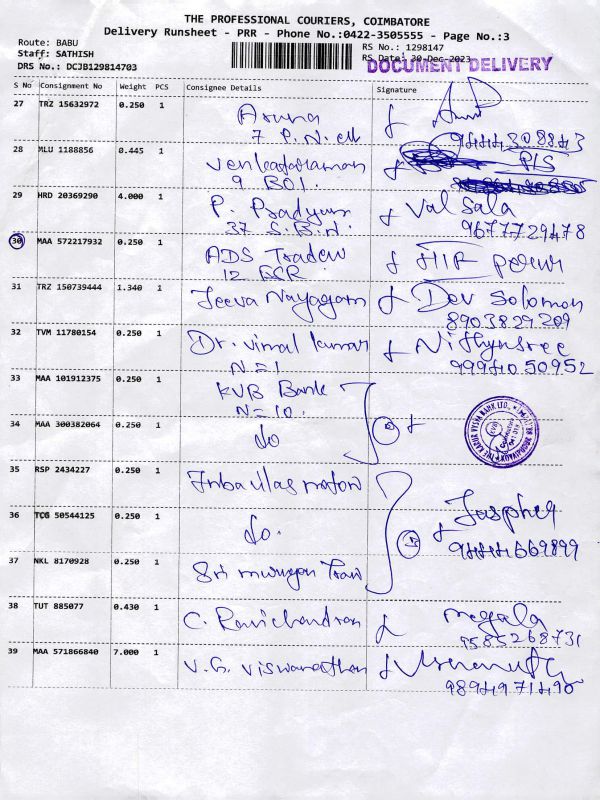 THE PROFESSIONAL COURIERS, COIMBATORE
Delivery Runsheet - PRR - Phone No.:0422-3505555 - Page No.:3
Route: BABU
RS No.: 1298147
Staff: SATHISH
RS Date: 30-Dec-2023
DRS No.: DCJB129814703
DOCUMENT DELIVERY
S No Consignment No Weight PCS Consignee Details Signature
27 TRZ 15632972 0.250 1 Aruna
7 P.N.
28 MLU 1188856 0.445 1 Venkataraman P/S
9 BOI.
29 HRD 20369290 4.000 1 P. Pradyun Val Sala
37 S.B.N. 9677729478
30 MAA 572217932 0.250 1 ADS Traders
12
31 TRZ 150739444 1.340 1 Jeeva Nayagam Dev Solomon
8903829209
32 TVM 11780154 0.250 1 Dr. Vimal Kumar Nithyasree
N=1 9994050952
33 MAA 101912375 0.250 1 KVB Bank
N=10.
34 MAA 300382064 0.250 1 do 2
THE KARUR VYSYA BANK LTD.,
35 RSP 2434227 0.250 1 motors
36 TCG 50544125 0.250 1 do. 3 Jaspher
9444669899
37 NKL 8170928 0.250 1 Sri murugan Trad
38 TUT 885077 0.430 1 C. Ravichandran megala
9585268731
39 MAA 571866840 7.000 1 V.G. Viswanathan
9894971490